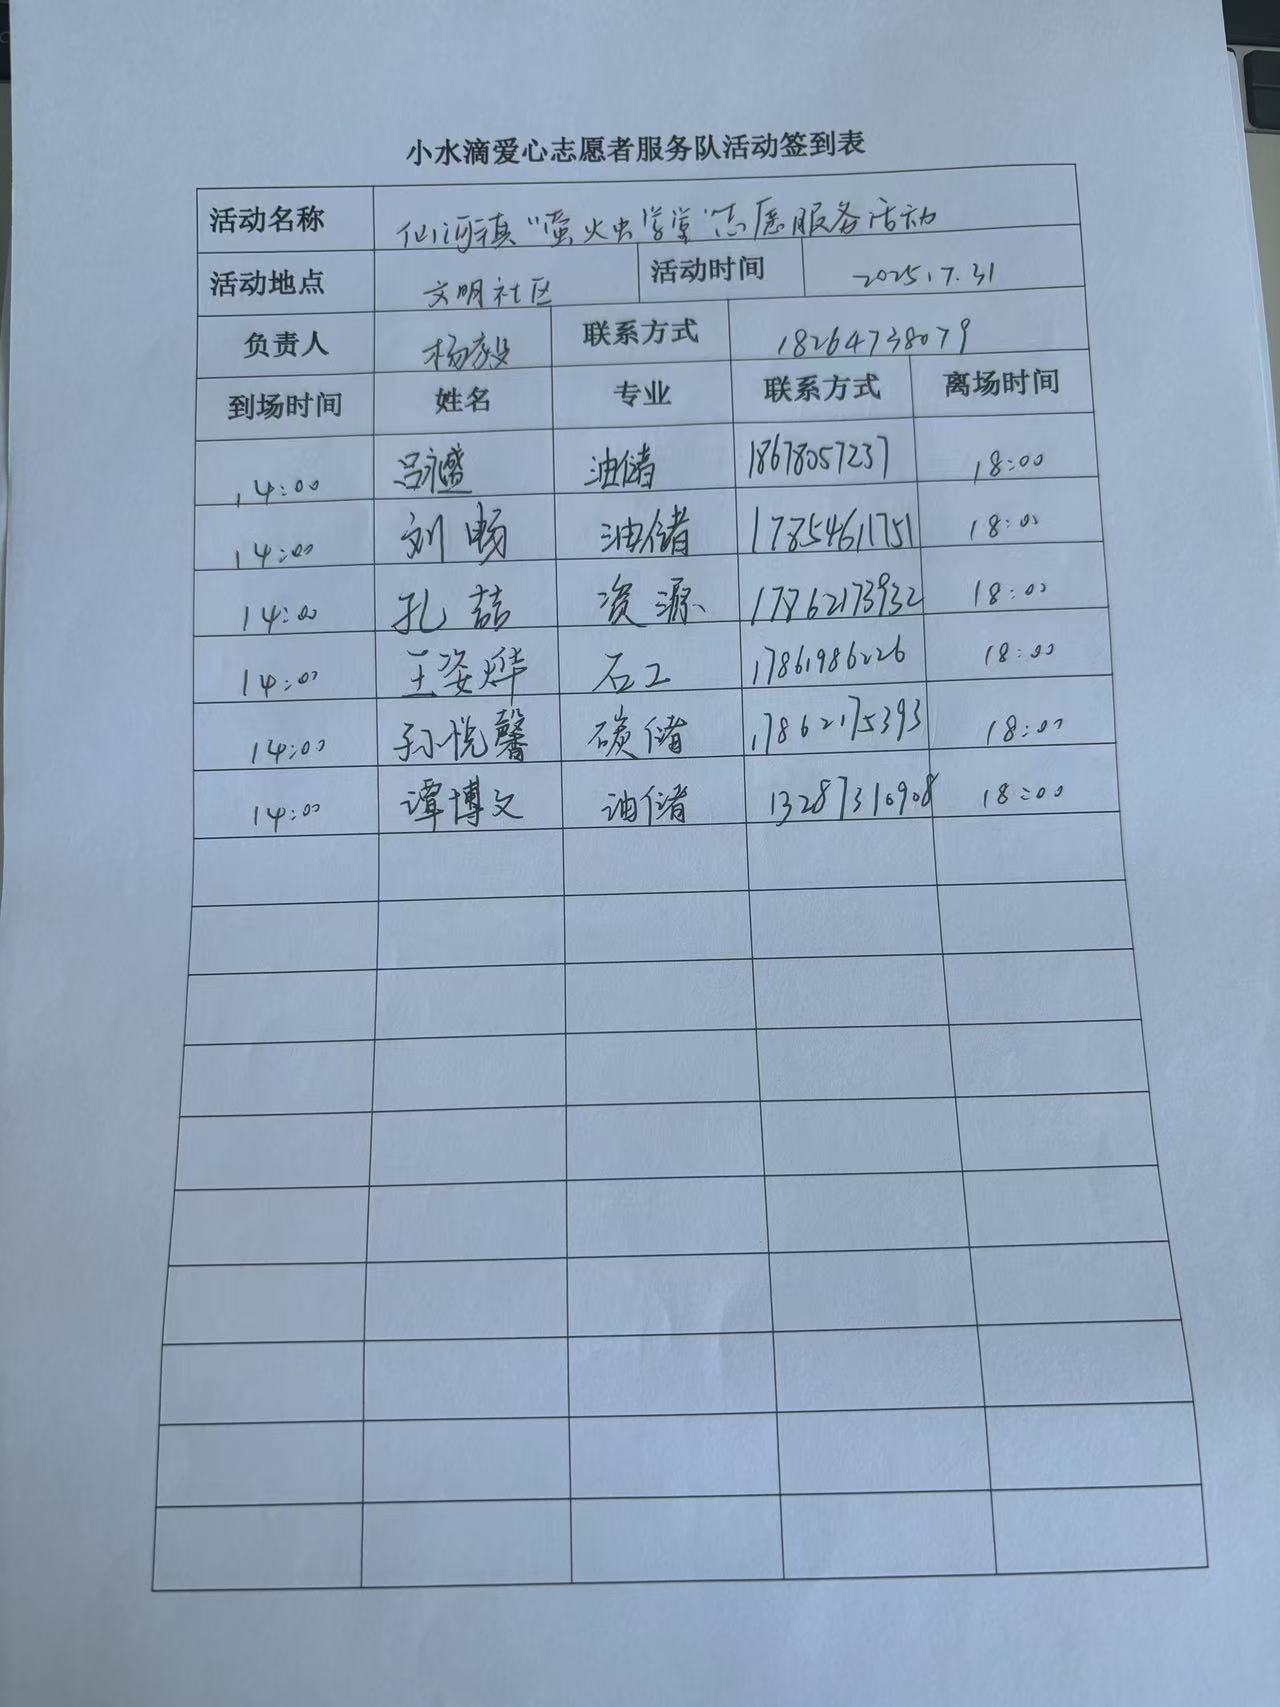 小水滴爱心志愿者服务队活动签到表
活动名称 仙河镇“萤火虫学堂”志愿服务活动
活动地点 文明社区 活动时间 2025.7.31
负责人 杨毅 联系方式 18264738079
到场时间 姓名 专业 联系方式 离场时间
14:00 吕永盛 油储 18678057237 18:00
14:00 刘畅 油储 17854611751 18:00
14:00 孔喆 资源 17862173932 18:00
14:00 王姿烨 石工 17861986226 18:00
14:00 孙悦馨 碳储 17862175393 18:00
14:00 谭博文 油储 13287310908 18:00